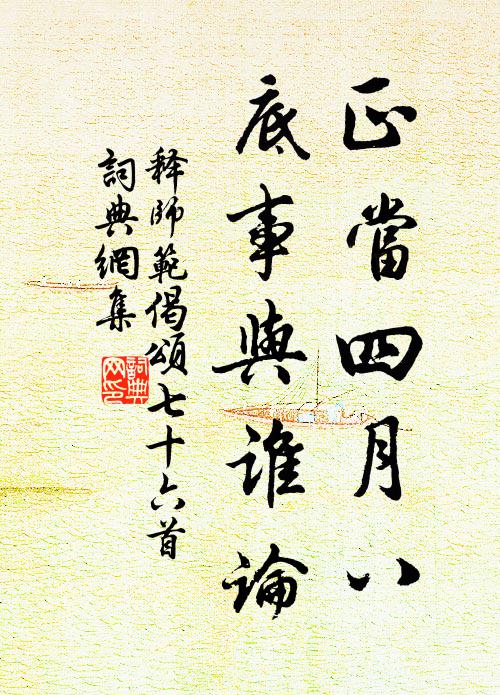 正當四月八
底事與誰論
释師範偈頌七十六首
詞典網集
詞典
网印